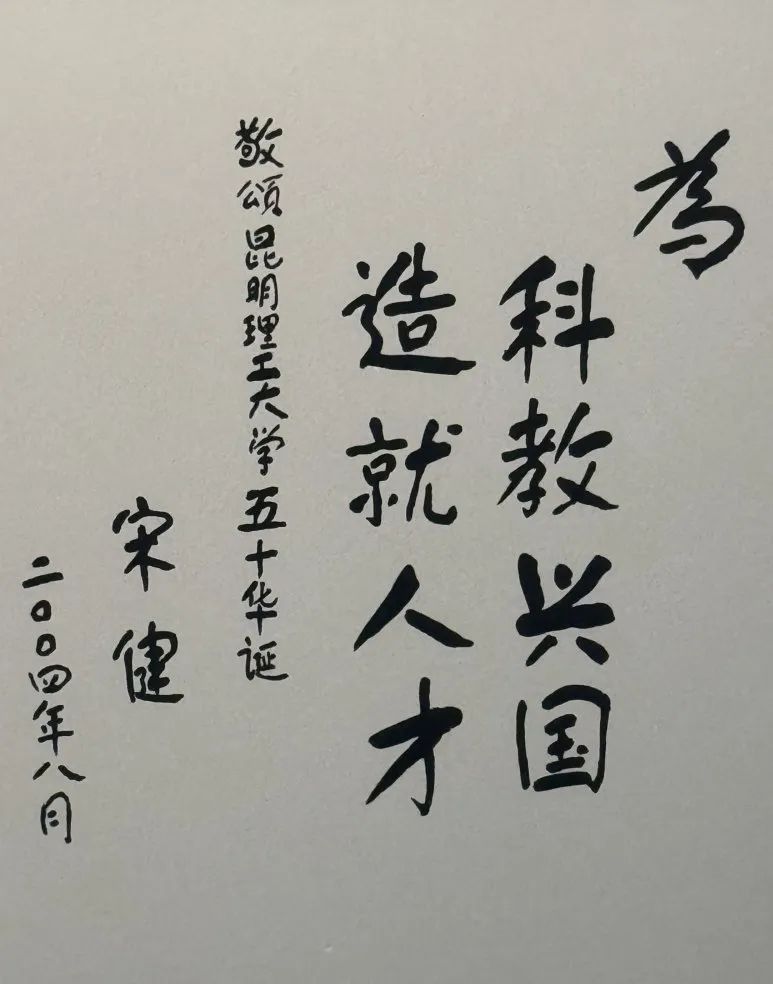 為
科教兴国
造就人才
敬颂昆明理工大学五十华诞
宋健
二〇〇四年八月